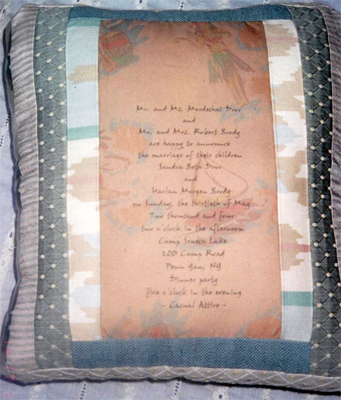 Mr. and Mrs. Mordechai Dror
and
Mr. and Mrs. Robert Brody
are happy to announce
the marriage of their children
Sandra Beth Dror
and
Harlan Morgen Brody
on Sunday, the thirtieth of May
Two thousand and four
two o'clock in the afternoon
Camp Seneca Lake
200 Camp Road
Penn Yan, NY
Dinner party
five o'clock in the evening
~ Casual Attire ~